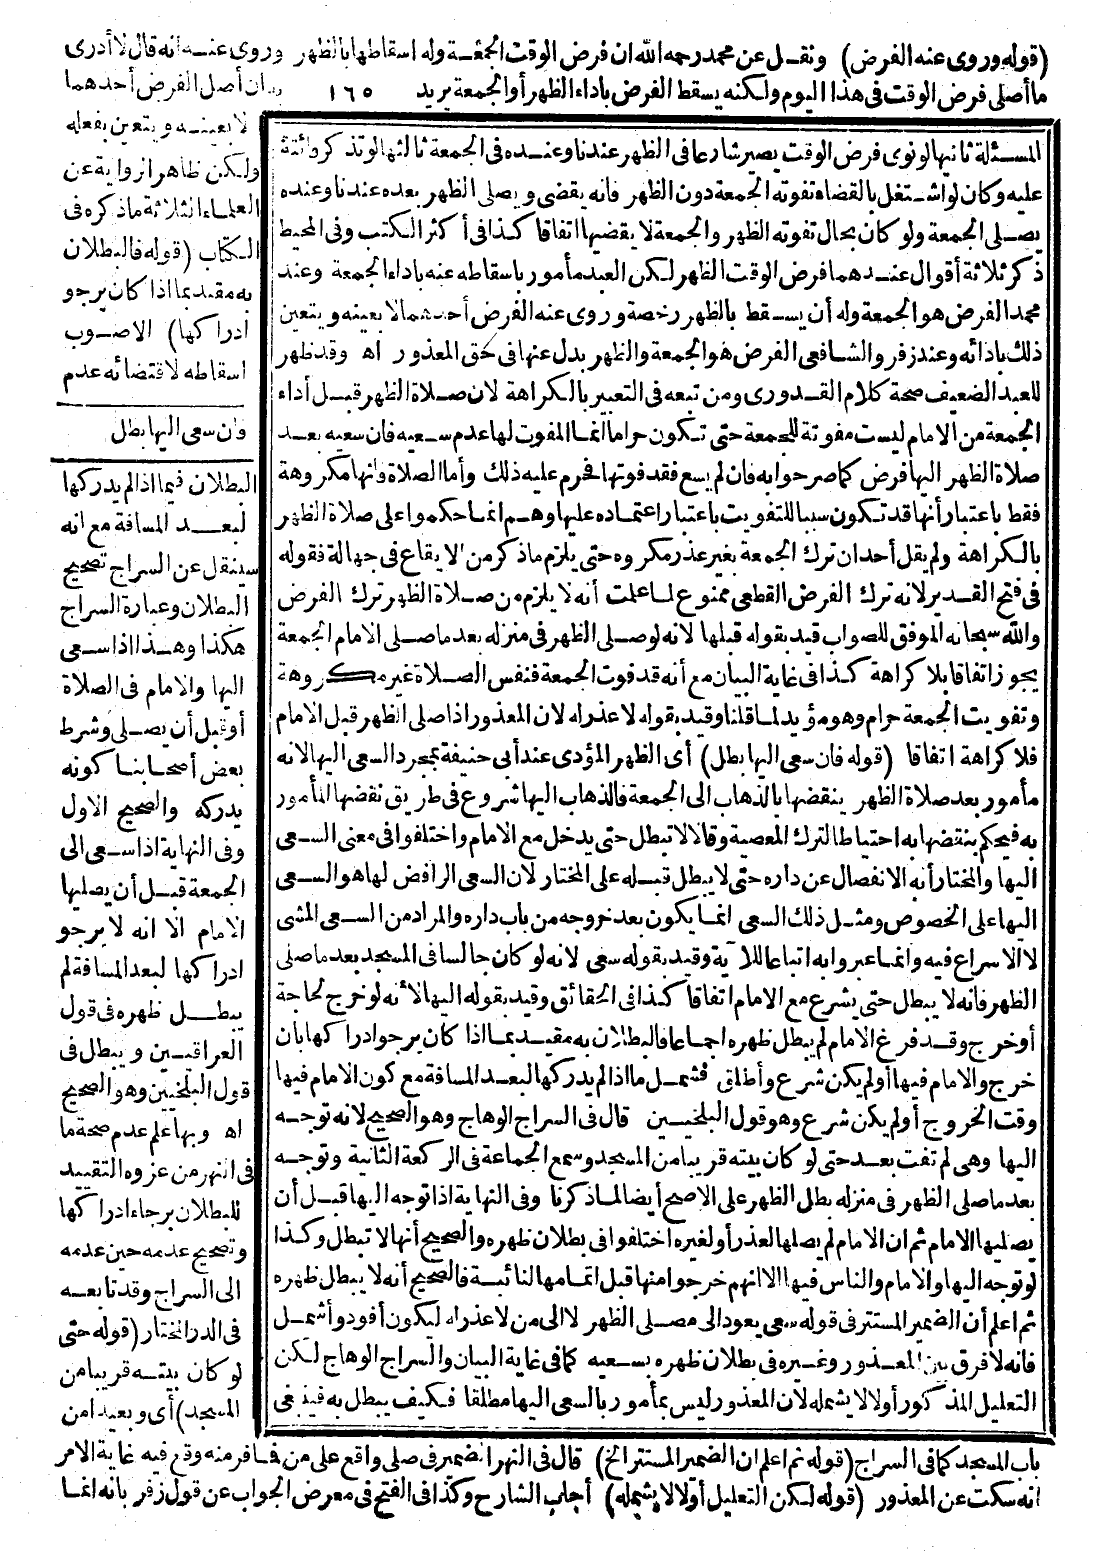 (قوله وروى عنه الفرض) ونقل عن محمد رحمه الله ان فرض الوقت الجمعة وله اسقاطها بالظهر وروى عنه انه قال لا أدرى
ما أصلى فرض الوقت فى هذا اليوم ولكنه يسقط الفرض باداء الظهر أو الجمعة يريد ١٦٥ ان أصل الفرض أحدهما
لا بعينه ويتعين بفعله
ولكن ظاهر الرواية عن
العلماء الثلاثة ماذكره فى
الكتاب (قوله فالبطلان
به مقيد بما اذا كان يرجو
ادراكها) الاصوب
اسقاطه لاقتضائه عدم
وان سعى اليها بطل
البطلان فيما اذا لم يدركها
لبعد المسافة مع انه
سينقل عن السراج تصحيح
البطلان وعبارة السراج
هكذا وهذا اذا سعى
اليها والامام فى الصلاة
أو قبل أن يصلى وشرط
بعض أصحابنا كونه
يدركه والصحيح الاول
وفى النهاية اذا سعى الى
الجمعة قبل أن يصليها
الامام الا انه لا يرجو
ادراكها لبعد المسافة لم
يبطل ظهره فى قول
العراقيين ويبطل فى
قول البلخيين وهو الصحيح
اه وبها علم عدم صحة ما
فى النهر من عزوه التقييد
للبطلان برجاء ادراكها
وتصحيح عدمه حين عدمه
الى السراج وقد تابعه
فى الدر المختار (قوله حتى
لو كان بيته قريبا من
المسجد) أى وبعيدا من
المسئلة ثانيها لو نوى فرض الوقت يصير شارعا فى الظهر عندنا وعنده فى الجمعة ثالثها لو تذكر فائتة
عليه وكان لو اشتغل بالقضاء تفوته الجمعة دون الظهر فانه يقضى ويصلى الظهر بعده عندنا وعنده
يصلى الجمعة ولو كان بحال تفوته الظهر والجمعة لا يقضيها اتفاقا كذا فى أكثر الكتب وفى المحيط
ذكر ثلاثة أقوال عندهما فرض الوقت الظهر لكن العبد مأمور باسقاطه عنه باداء الجمعة وعند
محمد الفرض هو الجمعة وله أن يسقط بالظهر رخصة وروى عنه الفرض أحدهما لا بعينه ويتعين
ذلك بادائه وعند زفر والشافعى الفرض هو الجمعة والظهر بدل عنها فى حق المعذور اه وقد ظهر
للعبد الضعيف صحة كلام القدورى ومن تبعه فى التعبير بالكراهة لان صلاة الظهر قبل أداء
الجمعة من الامام ليست مفوتة للجمعة حتى تكون حراما انما المفوت لها عدم سعيه فان سعيه بعد
صلاة الظهر اليها فرض كما صرحوا به فان لم يسع فقد فوتها فحرم عليه ذلك وأما الصلاة فانها مكروهة
فقط باعتبار أنها قد تكون سببا للتفويت باعتبار اعتماده عليها وهم انما حكموا على صلاة الظهر
بالكراهة ولم يقل أحد ان ترك الجمعة بغير عذر مكروه حتى يلزم ماذكر من الايقاع فى جهالة فقوله
فى فتح القدير لانه ترك الفرض القطعى ممنوع لما علمت أنه لا يلزم من صلاة الظهر ترك الفرض
والله سبحانه الموفق للصواب قيد بقوله قبلها لانه لو صلى الظهر فى منزله بعد ما صلى الامام الجمعة
يجوز اتفاقا بلا كراهة كذا فى غاية البيان مع أنه قد فوت الجمعة فنفس الصلاة غير مكروهة
وتفويت الجمعة حرام وهو مؤيد لما قلنا وقيد بقوله لا عذر له لان المعذور اذا صلى الظهر قبل الامام
فلا كراهة اتفاقا (قوله فان سعى اليها بطل) أى الظهر المؤدى عند أبى حنيفة بمجرد السعى اليها لانه
مأمور بعد صلاة الظهر ينقضها بالذهاب الى الجمعة فالذهاب اليها شروع فى طريق نقضها المأمور
به فيحكم بنقضها به احتياطا لترك المعصية وقالا لا تبطل حتى يدخل مع الامام واختلفوا فى معنى السعى
اليها والمختار أنه الانفصال عن داره حتى لا يبطل قبله على المختار لان السعى الرافض لها هو السعى
اليها على الخصوص ومثل ذلك السعى انما يكون بعد خروجه من باب داره والمراد من السعى المشى
لا الاسراع فيه وانما عبر وابه اتباعا للآية وقيد بقوله سعى لانه لو كان جالسا فى المسجد بعد ما صلى
الظهر فانه لا يبطل حتى يشرع مع الامام اتفاقا كذا فى الحقائق وقيد بقوله اليها لأنه لو خرج لحاجة
أو خرج وقد فرغ الامام لم يبطل ظهره اجماعا فالبطلان به مقيد بما اذا كان يرجو ادراكها بان
خرج والامام فيها أو لم يكن شرع وأطلق فشمل ما اذا لم يدركها لبعد المسافة مع كون الامام فيها
وقت الخروج أو لم يكن شرع وهو قول البلخيين قال فى السراج الوهاج وهو الصحيح لانه توجه
اليها وهى لم تفت بعد حتى لو كان بيته قريبا من المسجد وسمع الجماعة فى الركعة الثانية وتوجه
بعد ما صلى الظهر فى منزله بطل الظهر على الاصح أيضا لما ذكرنا وفى النهاية اذا توجه اليها قبل أن
يصليها الامام ثم ان الامام لم يصلها لعذر أو لغيره اختلفوا فى بطلان ظهره والصحيح أنها لا تبطل وكذا
لو توجه اليها والامام والناس فيها الا انهم خرجوا منها قبل اتمامها لنائبة فالصحيح أنه لا يبطل ظهره
ثم اعلم أن الضمير المستتر فى قوله سعى يعود الى مصلى الظهر لا الى من لا عذر له ليكون أفود وأشمل
فانه لا فرق بين المعذور وغيره فى بطلان ظهره بسعيه كما فى غاية البيان والسراج الوهاج لكن
التعليل المذكور أولا لا يشمله لان المعذور ليس بمأمور بالسعى اليها مطلقا فكيف يبطل به فينبغى
باب المسجد كما فى السراج (قوله ثم اعلم ان الضمير المستتر الخ) قال فى النهر الضمير فى صلى واقع على من فافر منه وقع فيه غاية الامر
انه سكت عن المعذور (قوله لكن التعليل أولا لا يشمله) أجاب الشارح وكذا فى الفتح فى معرض الجواب عن قول زفر بانه انما